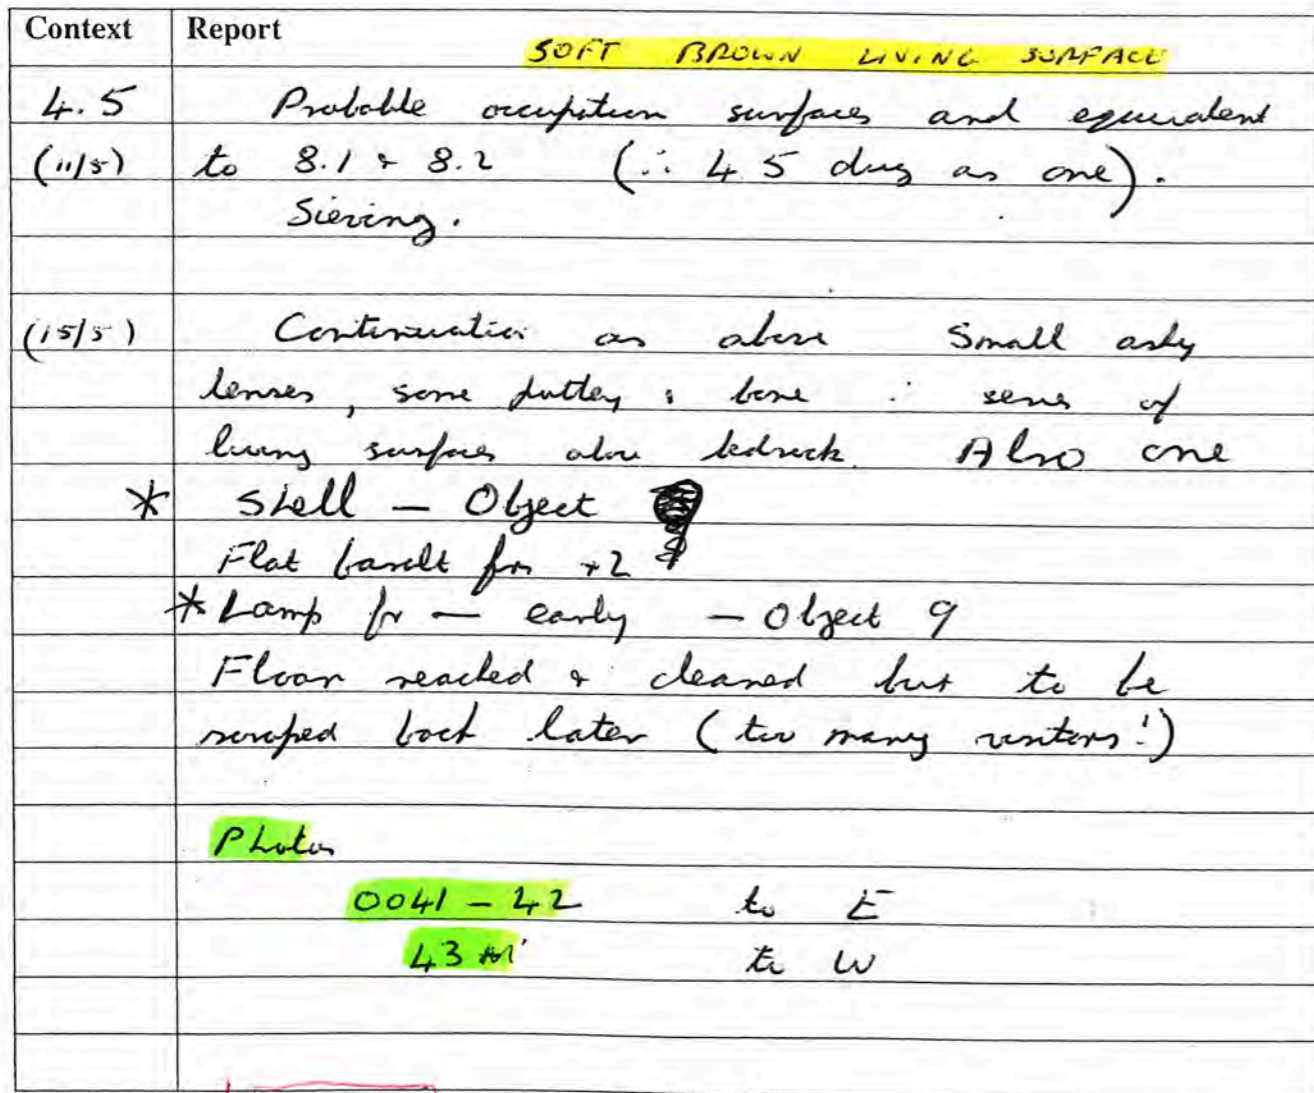 Context Report
SOFT BROWN LIVING SURFACE
4.5 Probable occupation surfaces and equivalent
(11/5) to 8.1 + 8.2 (∴ 4.5 dug as one).
Sieving.
(15/5) Continuation as above Small ashy
lenses, some pottery & bone ∴ series of
living surfaces above bedrock. Also one
* Shell — Object
Flat basalt frn +2
* Lamp fr — early — Object 9
Floor reached & cleaned but to be
scraped back later (too many visitors!)
Photos
0041 - 42 to E
43 to W